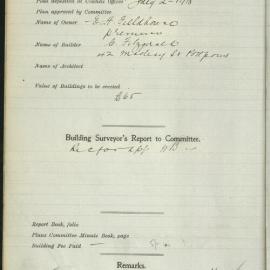 Plan deposited at Councils Offices July 2-1918
Plan approved by Committee
Name of Owner - E. A. Fieldhouse
Premises
Name of Builder C. Fitzgerald
42 St
Name of Architect
Value of Buildings to be erected
£65
Building Surveyor's Report to Committee.
Rec for
Report Book, folio
Plans Committee Minute Book, page
Building Fee Paid —
Remarks.